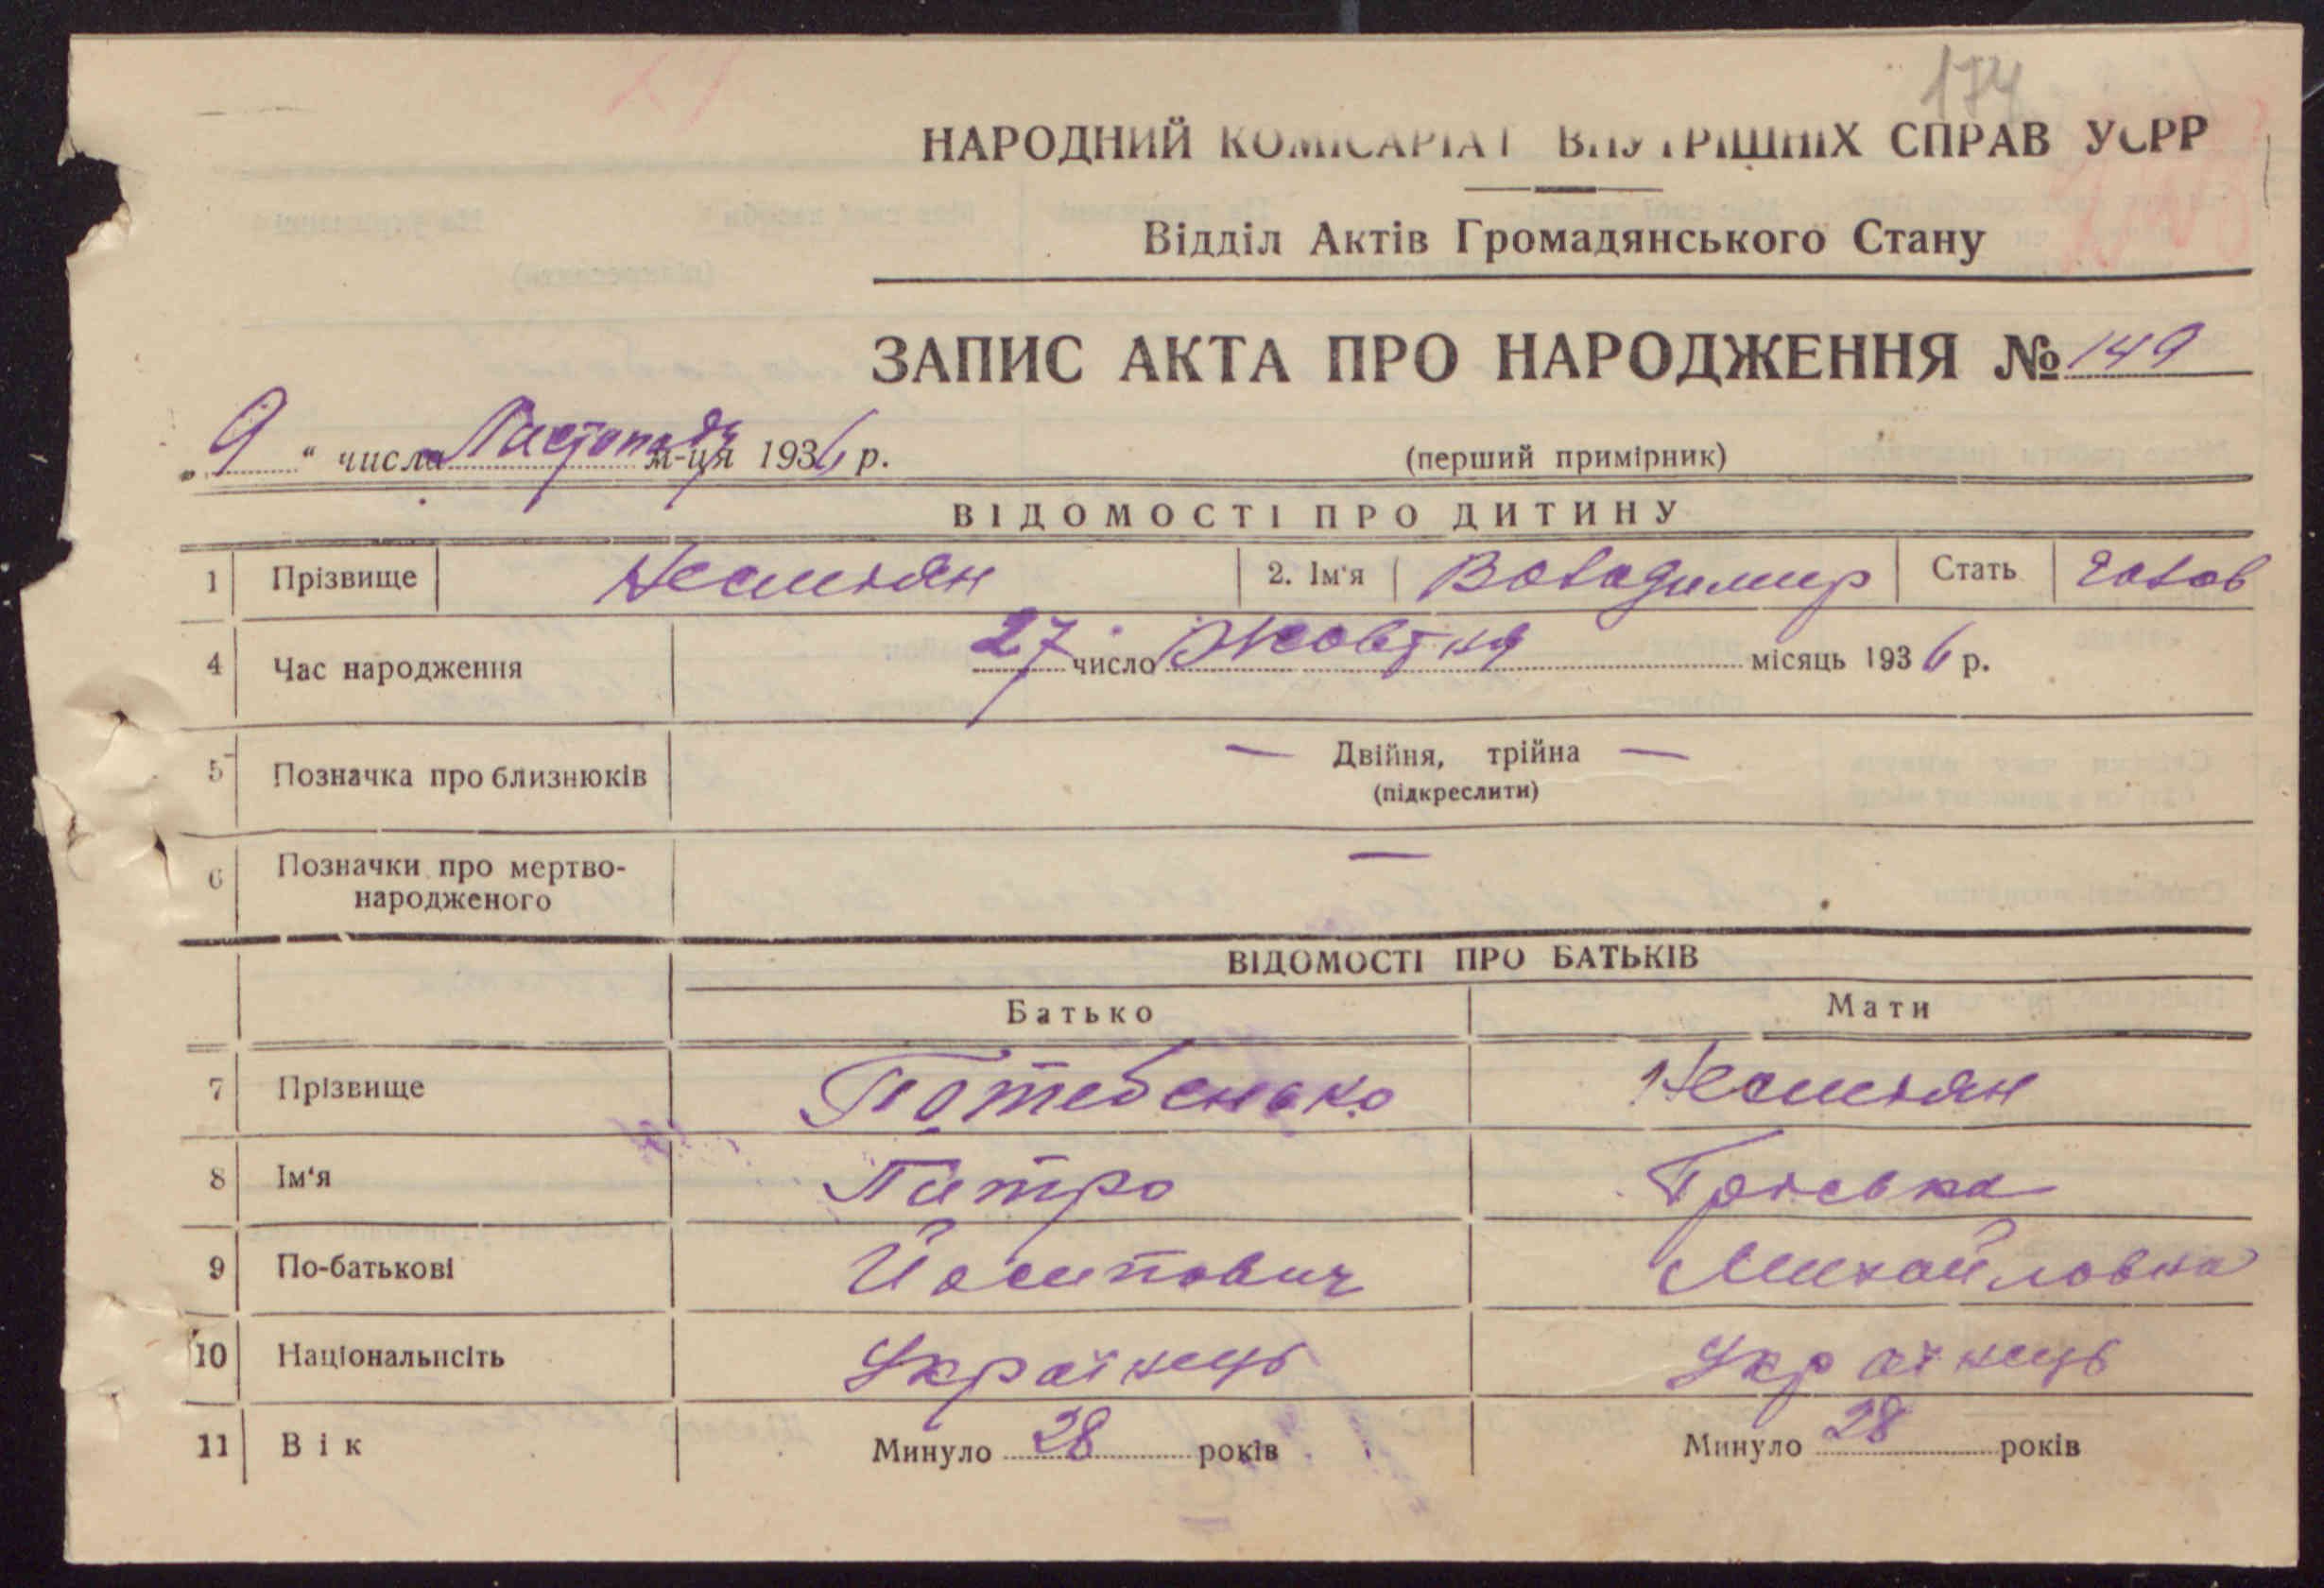 174
НАРОДНИЙ КОМІСАРІАТ ВНУТРІШНІХ СПРАВ УСРР
Відділ Актів Громадянського Стану
ЗАПИС АКТА ПРО НАРОДЖЕННЯ № 149
„ 9 “ числа Листопада м-ця 1936 р.
(перший примірник)
ВІДОМОСТІ ПРО ДИТИНУ
1 Прізвище Несміян 2. Ім'я Володимир Стать Чолов
4 Час народження 27 число Жовтня місяць 1936 р.
5 Позначка про близнюків — Двійня, трійна —
(підкреслити)
6 Позначки про мертво-
народженого —
ВІДОМОСТІ ПРО БАТЬКІВ
Батько Мати
7 Прізвище Потебенько Несміян
8 Ім'я Питро
9 По-батькові Йосипович Михайловна
10 Національнсіть Українець Українець
11 Вік Минуло 28 років Минуло 28 років